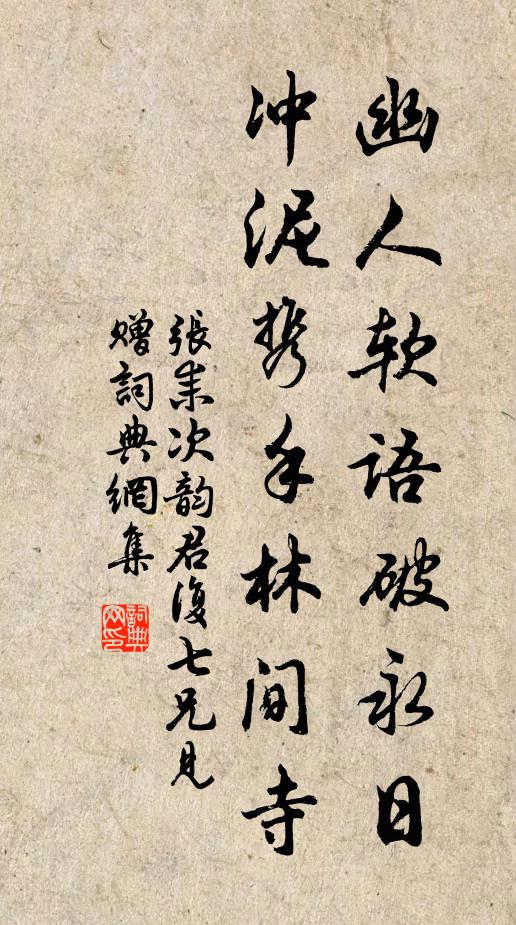 幽人软语破永日
冲泥携手林间寺
張耒次韵君復七兄見
赠詞典網集
詞典
网印